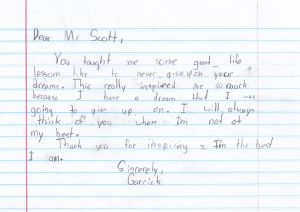 Dear Mr Scott,
You taught me some great life
lessons like to never give up on your
dreams. This really inspired me so much
because I have a dream that I was
going to give up on. I will always
think of you when I'm not at
my best.
Thank you for inspiring I'm the best
I am.
Sincerely,
Garrick